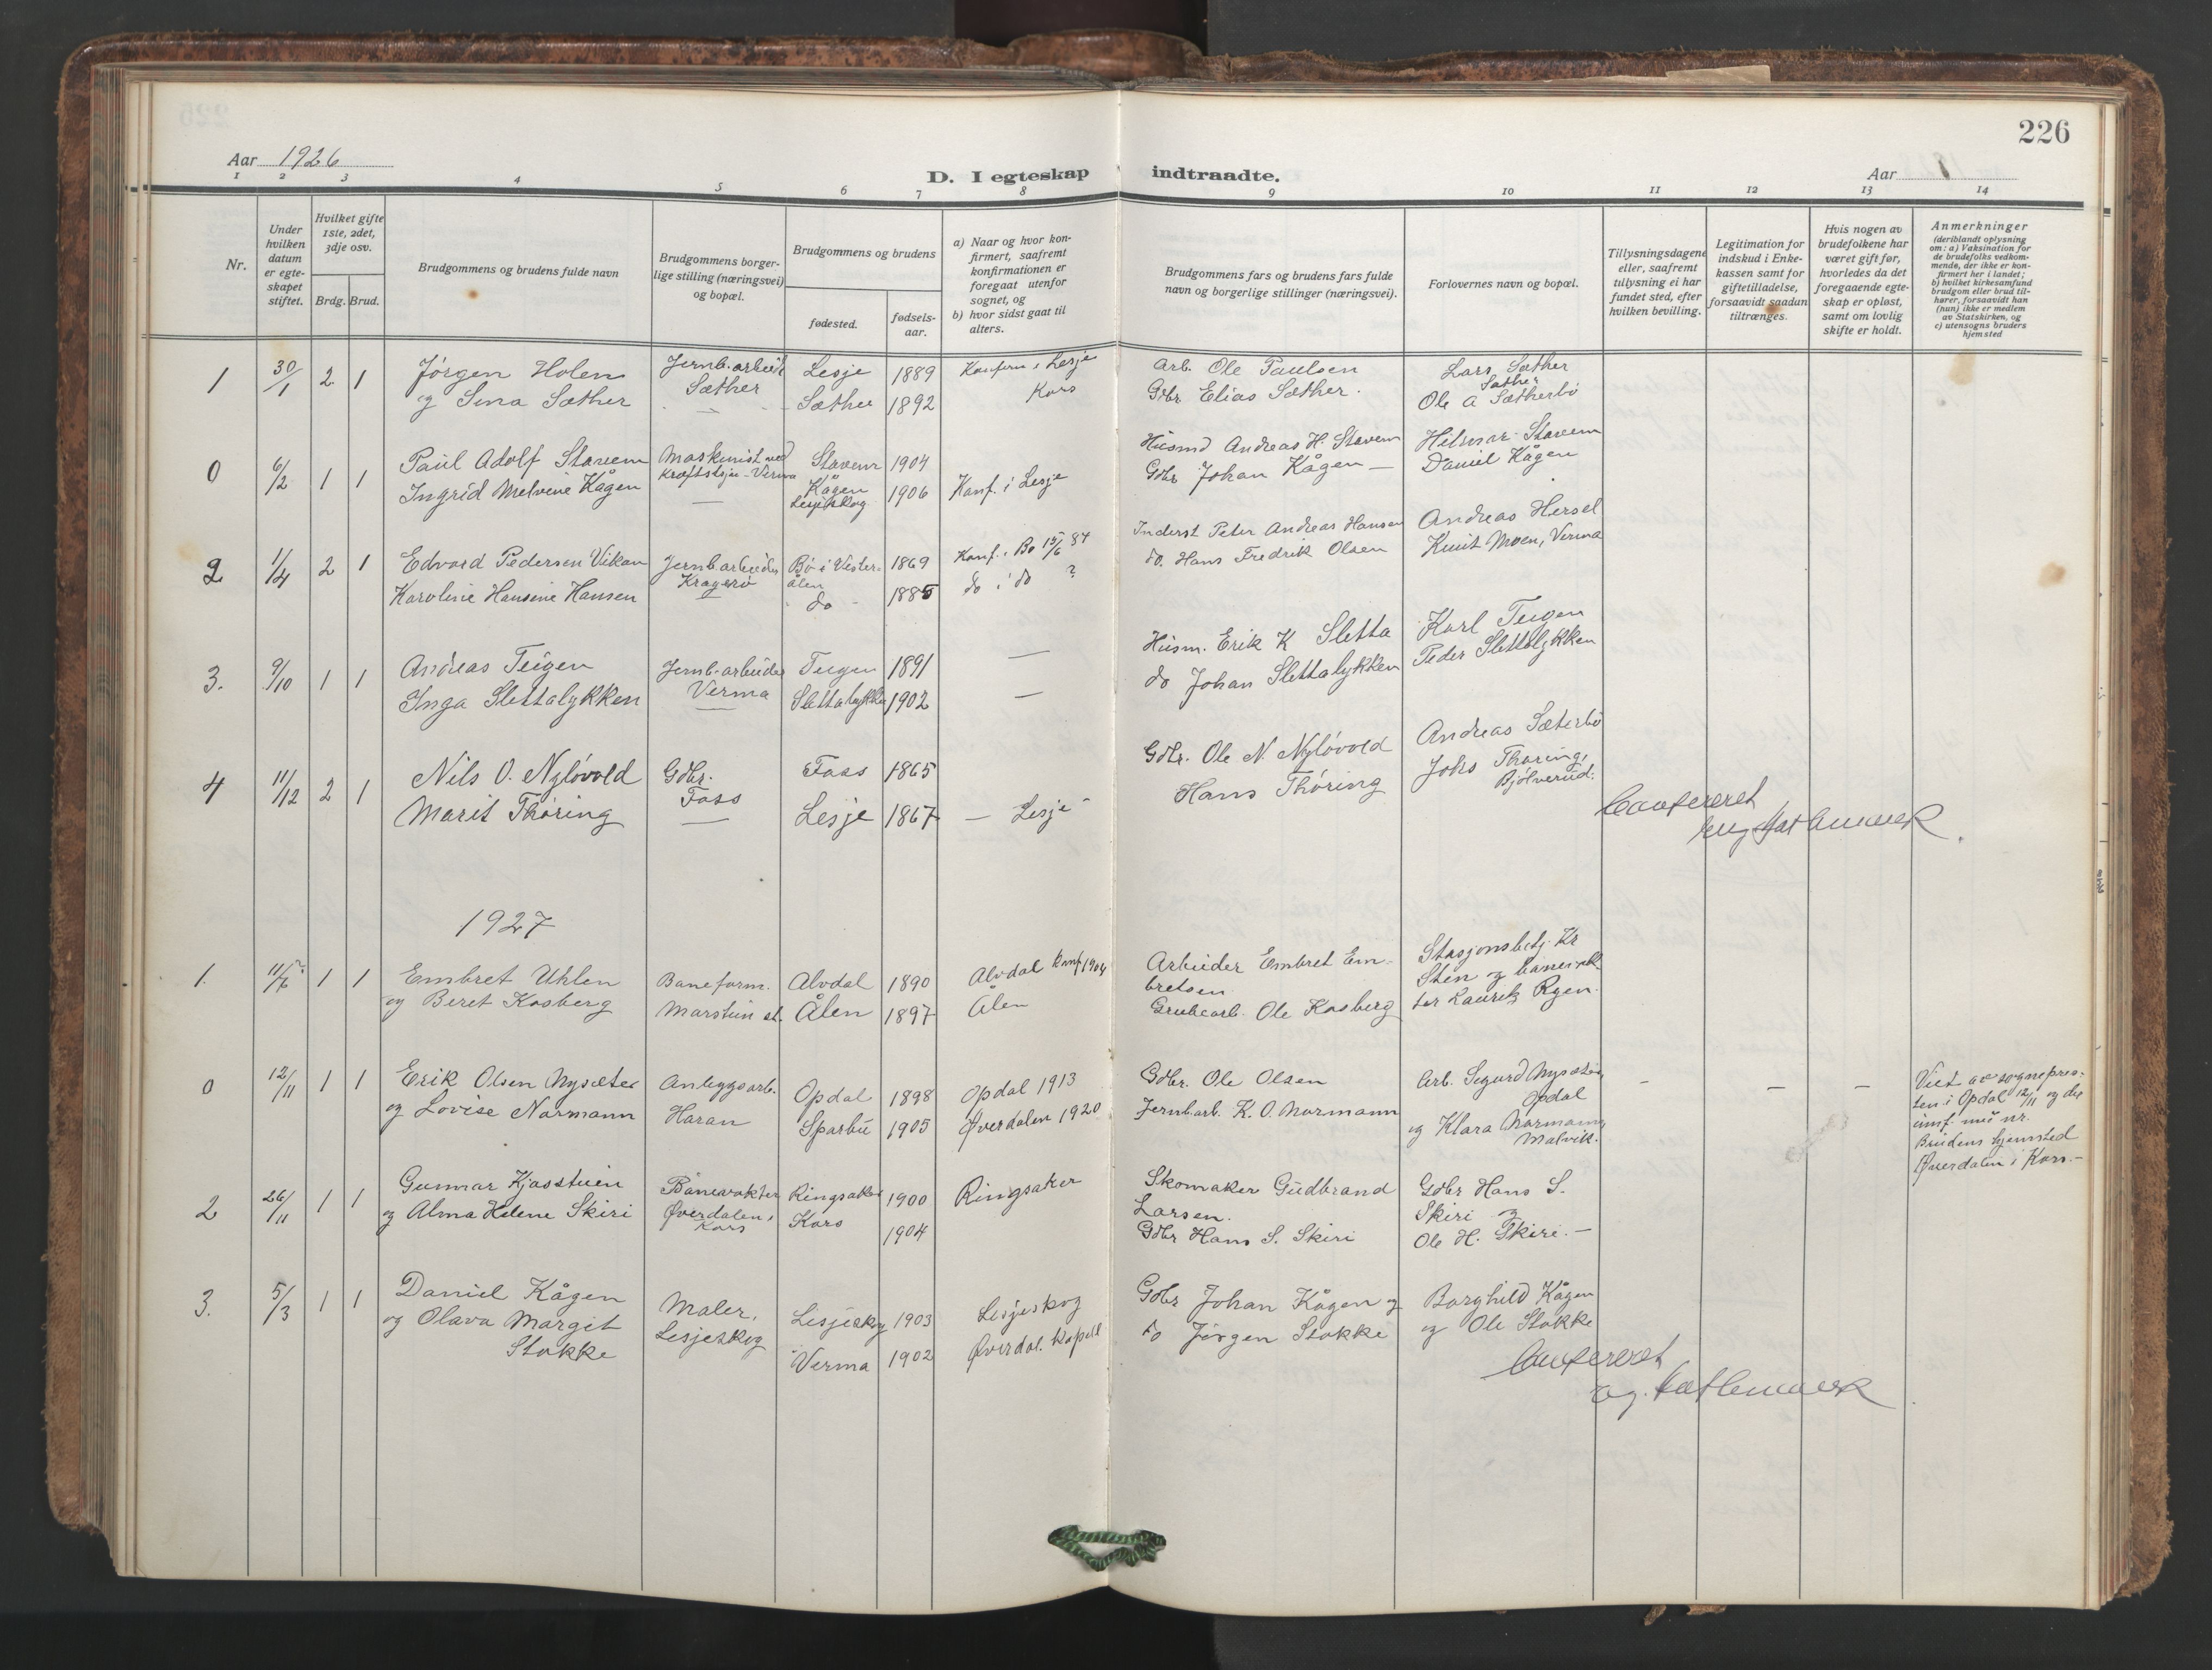 226
Aar 1926
D. I egteskap indtraadte.
Aar
1 2 3 4 5 6 7 8 9 10 11 12 13 14
Nr.
Under hvilken datum er egteskapet stiftet.
Hvilket gifte 1ste, 2det, 3dje osv.
Brdg. Brud.
Brudgommens og brudens fulde navn
Brudgommens borgerlige stilling (næringsvei) og bopæl.
Brudgommens og brudens
fødested.
fødselsaar.
a) Naar og hvor konfirmert, saafremt konfirmationen er foregaat utenfor sognet, og
b) hvor sidst gaat til alters.
Brudgommens fars og brudens fars fulde navn og borgerlige stillinger (næringsvei).
Forlovernes navn og bopæl.
Tillysningsdagene eller, saafremt tillysning ei har fundet sted, efter hvilken bevilling.
Legitimation for indskud i Enkekassen samt for giftetilladelse, forsaavidt saadan tiltrænges.
Hvis nogen av brudefolkene har været gift før, hvorledes da det foregaaende egteskap er opløst, samt om lovlig skifte er holdt.
Anmerkninger
(deriblandt oplysning om: a) Vaksination for de brudefolks vedkommende, der ikke er konfirmert her i landet;
b) hvilket kirkesamfund brudgom eller brud tilhører, forsaavidt han (hun) ikke er medlem av Statskirken, og
c) utensogns bruders hjemsted
1 30/1 2 1 Jørgen Holen Jernb.arbeid. Lesje 1889 Konferm i Lesje Arb. Ole Paulsen Lars Sæther
og Sina Sæther Sæther Sæther 1892 Kors Gdbr Elias Sæther. Sæther
Ole A Sætherbø
0 6/2 1 1 Paul Adolf Stavem Maskinist ved Stavem 1904 Husmd Andreas H. Stavem Helmar Stavem
Ingrid Melvene Kågen kraftstsjn-Verma Kågen Lesjeskog 1906 Konf. i Lesje Gdbr Johan Kågen — Daniel Kågen
2 1/4 2 1 Edvard Pedersen Vikan Jernb.arbeider Bø i Vesterålen 1869 Konf. i Bø 15/6 84 Inderst Peter Andreas Hansen Andreas Hersel
Karoline Hansine Hansen Kragerø do 1885 do i do ? do. Hans Fredrik Olsen Knut Moen, Verma
3. 9/10 1 1 Andreas Teigen Jernb.arbeider Teigen 1891 — Husm. Erik K Sletta Karl Teigen
Inga Slettalykken Verma Slettalykke 1902 — do Johan Slettalykken Peder Slettalykken
4 11/12 2 1 Nils O. Nyløvold Gdbr. Foss 1865 Gdbr. Ole N. Nyløvold Andreas Sæterbø
Marit Thøring Foss Lesje 1867 — Lesje Hans Thøring Johs Thøring,
Bjølverud.
Confereret
1927
1. 1 1 Embret Uhlen Baneform. Alvdal 1890 Alvdal konf 1904 Arbeider Embret Embretsen Stasjonsbetj. Kr
og Beret Kosberg Marstein st. Ålen 1897 Ålen Grubearb. Ole Kosberg Sten og banevokter Laurits Ryen.
0 12/11 1 1 Erik Olsen Nysæter Anleggsarb. Opdal 1898 Opdal 1913 Gdbr. Ole Olsen Arb. Sigurd Nysæter — — —
og Lovise Normann Haran Sparbu 1905 Øverdalen 1920 Jernb.arb. K. O. Normann Opdal
og Klara Normann
Malvik.
Viet av sognepresten i Opdal 12/11 og der
innf. med nr.
Brudens hjemsted
Øverdalen i Kors.—
2 26/11 1 1 Gunnar Kjosstuen Banevokter Ringsaker 1900 Ringsaker Skomaker Gudbrand Larsen. Gdbr Hans S.
og Alma Helene Skiri Øverdalen, Kors Kors 1904 Gdbr Hans S. Skiri Skiri og
Ole H. Skiri.—
3. 5/3 1 1 Daniel Kågen Maler, Lesjeskog 1903 Lesjeskog Gdbr Johan Kågen og Borghild Kågen
og Olava Margit Stokke Lesjeskog Verma 1902 Øverdal. kapell do Jørgen Stokke og Ole Stokke
Confereret